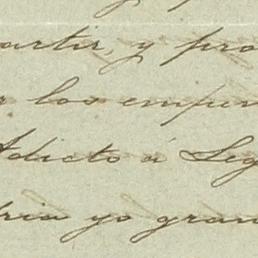 artir, y pro
r los empeñ
Adicto á Leg
ria yo gran